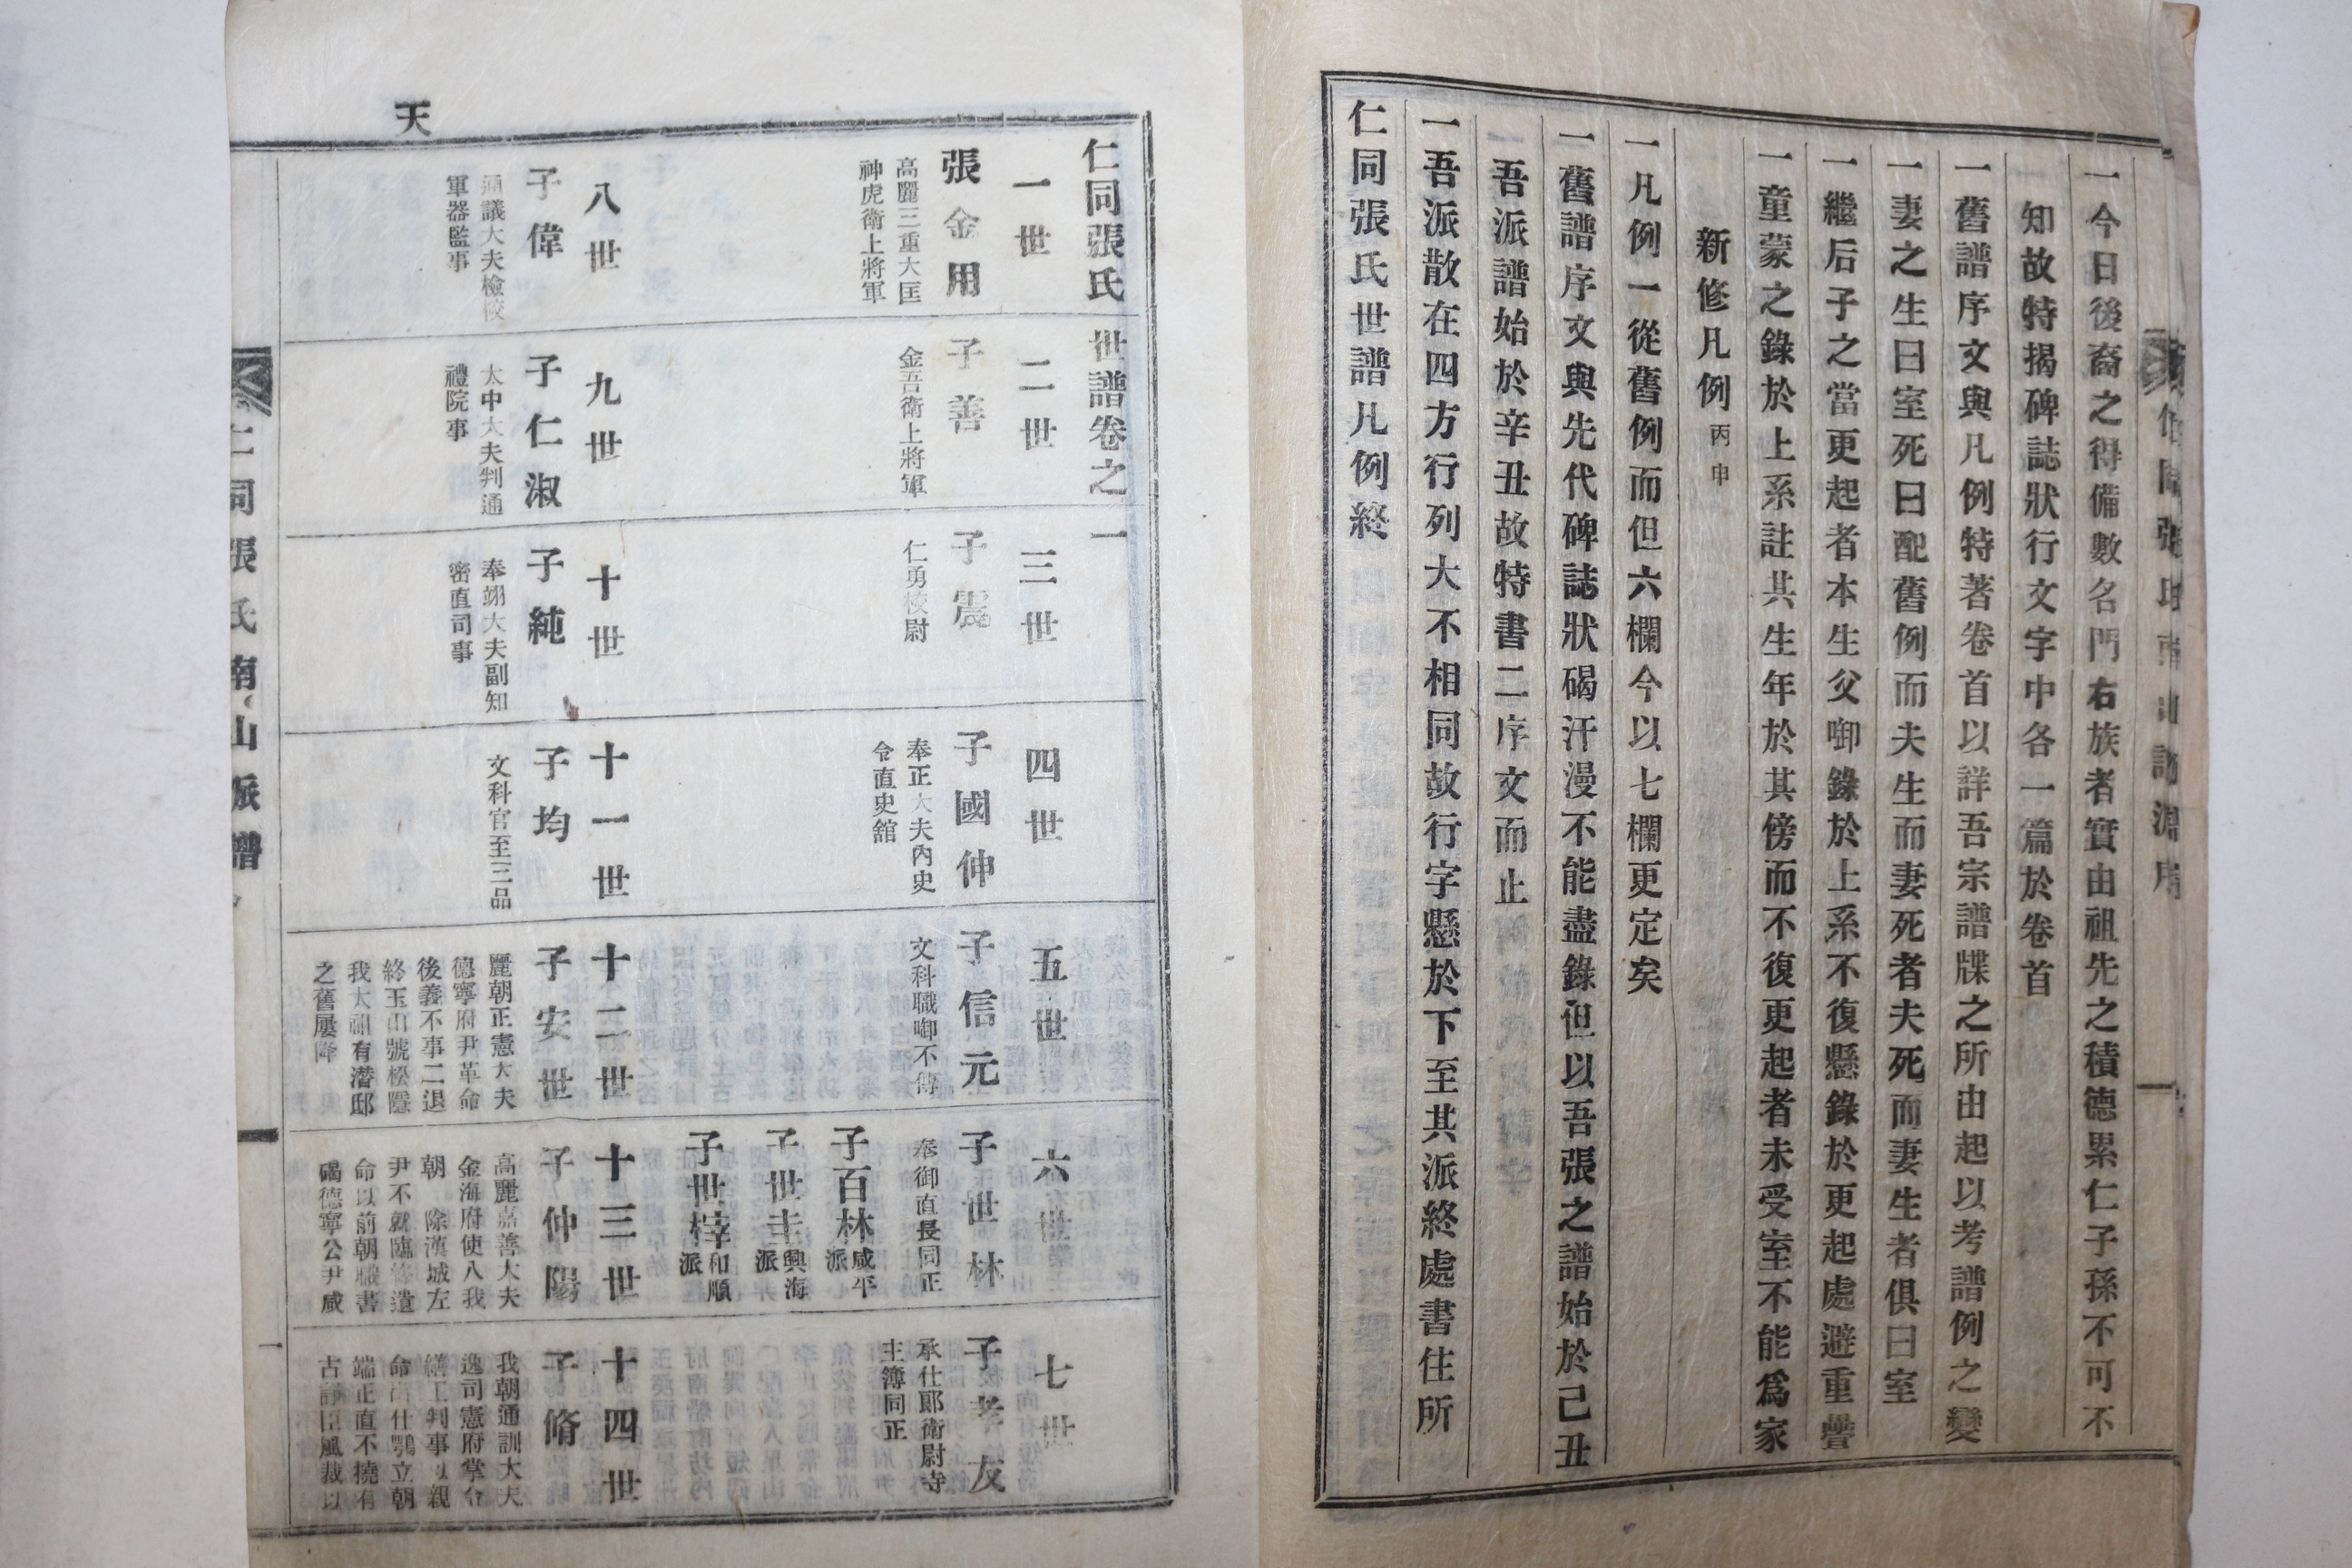 一今日後裔之得備數名門右族者實由祖先之積德累仁子孫不可不
知故特揭碑誌狀行文字中各一篇於卷首
一舊譜序文與凡例特著卷首以詳吾宗譜牒之所由起以考譜例之變
一妻之生曰室死曰配舊例而夫生而妻死者夫死而妻生者俱曰室
一繼后子之當更起者本生父啣錄於上系不復懸錄於更起處避重疊
一童蒙之錄於上系註其生年於其傍而不復更起者未受室不能爲家
新修凡例 丙申
一凡例一從舊例而但六欄今以七欄更定矣
一舊譜序文與先代碑誌狀碣汗漫不能盡錄但以吾張之譜始於己丑
吾派譜始於辛丑故特書二序文而止
一吾派散在四方行列大不相同故行字懸於下至其派終處書住所
仁同張氏世譜凡例終
天
仁同張氏世譜卷之一
一世
張金用
高麗三重大匡
神虎衛上將軍
二世
子善
金吾衛上將軍
三世
子震
仁勇校尉
四世
子國伸
奉正大夫內史
令直史館
五世
子信元
文科職啣不傳
六世
子世林
奉御直長同正
子百林 咸平派
子世圭 興海派
子世梓 和順派
七世
子孝友
承仕郞衛尉寺
主簿同正
八世
子偉
通議大夫檢校
軍器監事
九世
子仁淑
太中大夫判通
禮院事
十世
子純
奉翊大夫副知
密直司事
十一世
子均
文科官至三品
十二世
子安世
麗朝正憲大夫
德寧府尹革命
後義不事二退
終玉山號松隱
我太祖有潛邸
之舊屢降
十三世
子仲陽
高麗嘉善大夫
金海府使入我
朝 除漢城左
尹不就臨終遺
命以前朝職書
碣德寧公尹咸
十四世
子脩
我朝通訓大夫
逸司憲府掌令
繕工判事以親
命出仕鶚立朝
端正直不撓有
古諍臣風裁以
仁同張氏南山派譜
一